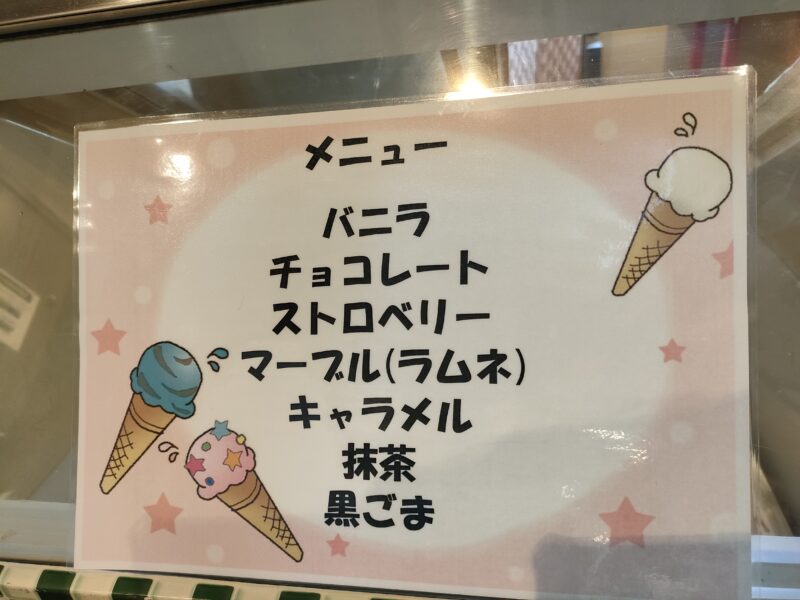 メニュー
バニラ
チョコレート
ストロベリー
マーブル(ラムネ)
キャラメル
抹茶
黒ごま